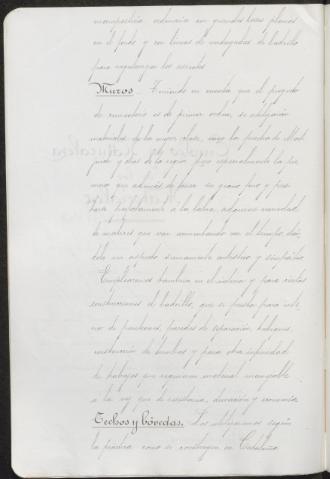 mampostería ordinaria con grandes losas planas
en el fondo y con líneas de verdugadas de ladrillo
para regularizar los asientos
Muros. Teniendo en cuenta que el proyecto
de cementerio es de primer orden, se utilizarán
materiales de la mejor clase, la piedra de
y otras de la región especialmente la pri-
mera que además de poseer su grano fino y pres-
tarse a la labra, adquiere variedad
de matices que van aumentando con el tiempo, dán-
dole un aspecto sumamente artístico y simpático
Emplearemos también en el interior y para ciertas
construcciones el ladrillo, que se presta para relle-
no de panteones, paredes de separación, tabiques,
construcción de bóvedas y para otra infinidad
de trabajos que requieren material manejable
a la vez que de resistencia, duración y economía
Techos y bóvedas. Los utilizaremos según
la práctica como se construyen en Cataluña